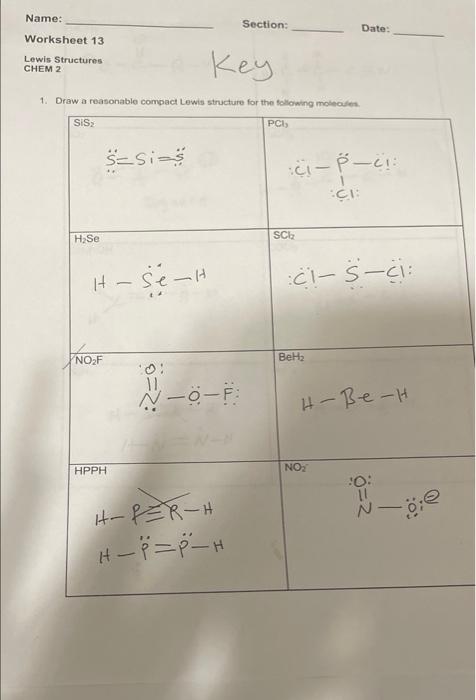 Name: Section: Date:
Worksheet 13
Lewis Structures
CHEM 2
Key
1. Draw a reasonable compact Lewis structure for the following molecules.
SiS₂ PCl₃
S=Si=S
:Cl-P-Cl:
:Cl:
H₂Se SCl₂
H-Se-H :Cl-S-Cl:
NO₂F BeH₂
:O:
N-O-F:
H-Be-H
HPPH NO₂⁻
:O:
N-O:⊖
H-P≡P-H
H-P=P-H